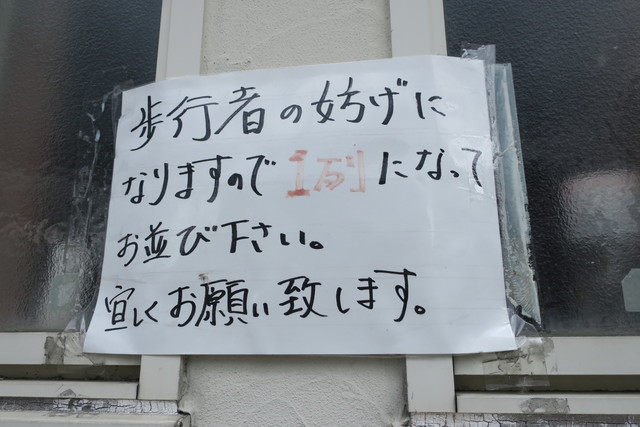 歩行者の妨げに
なりますので1列になって
お並び下さい。
宜しくお願い致します。